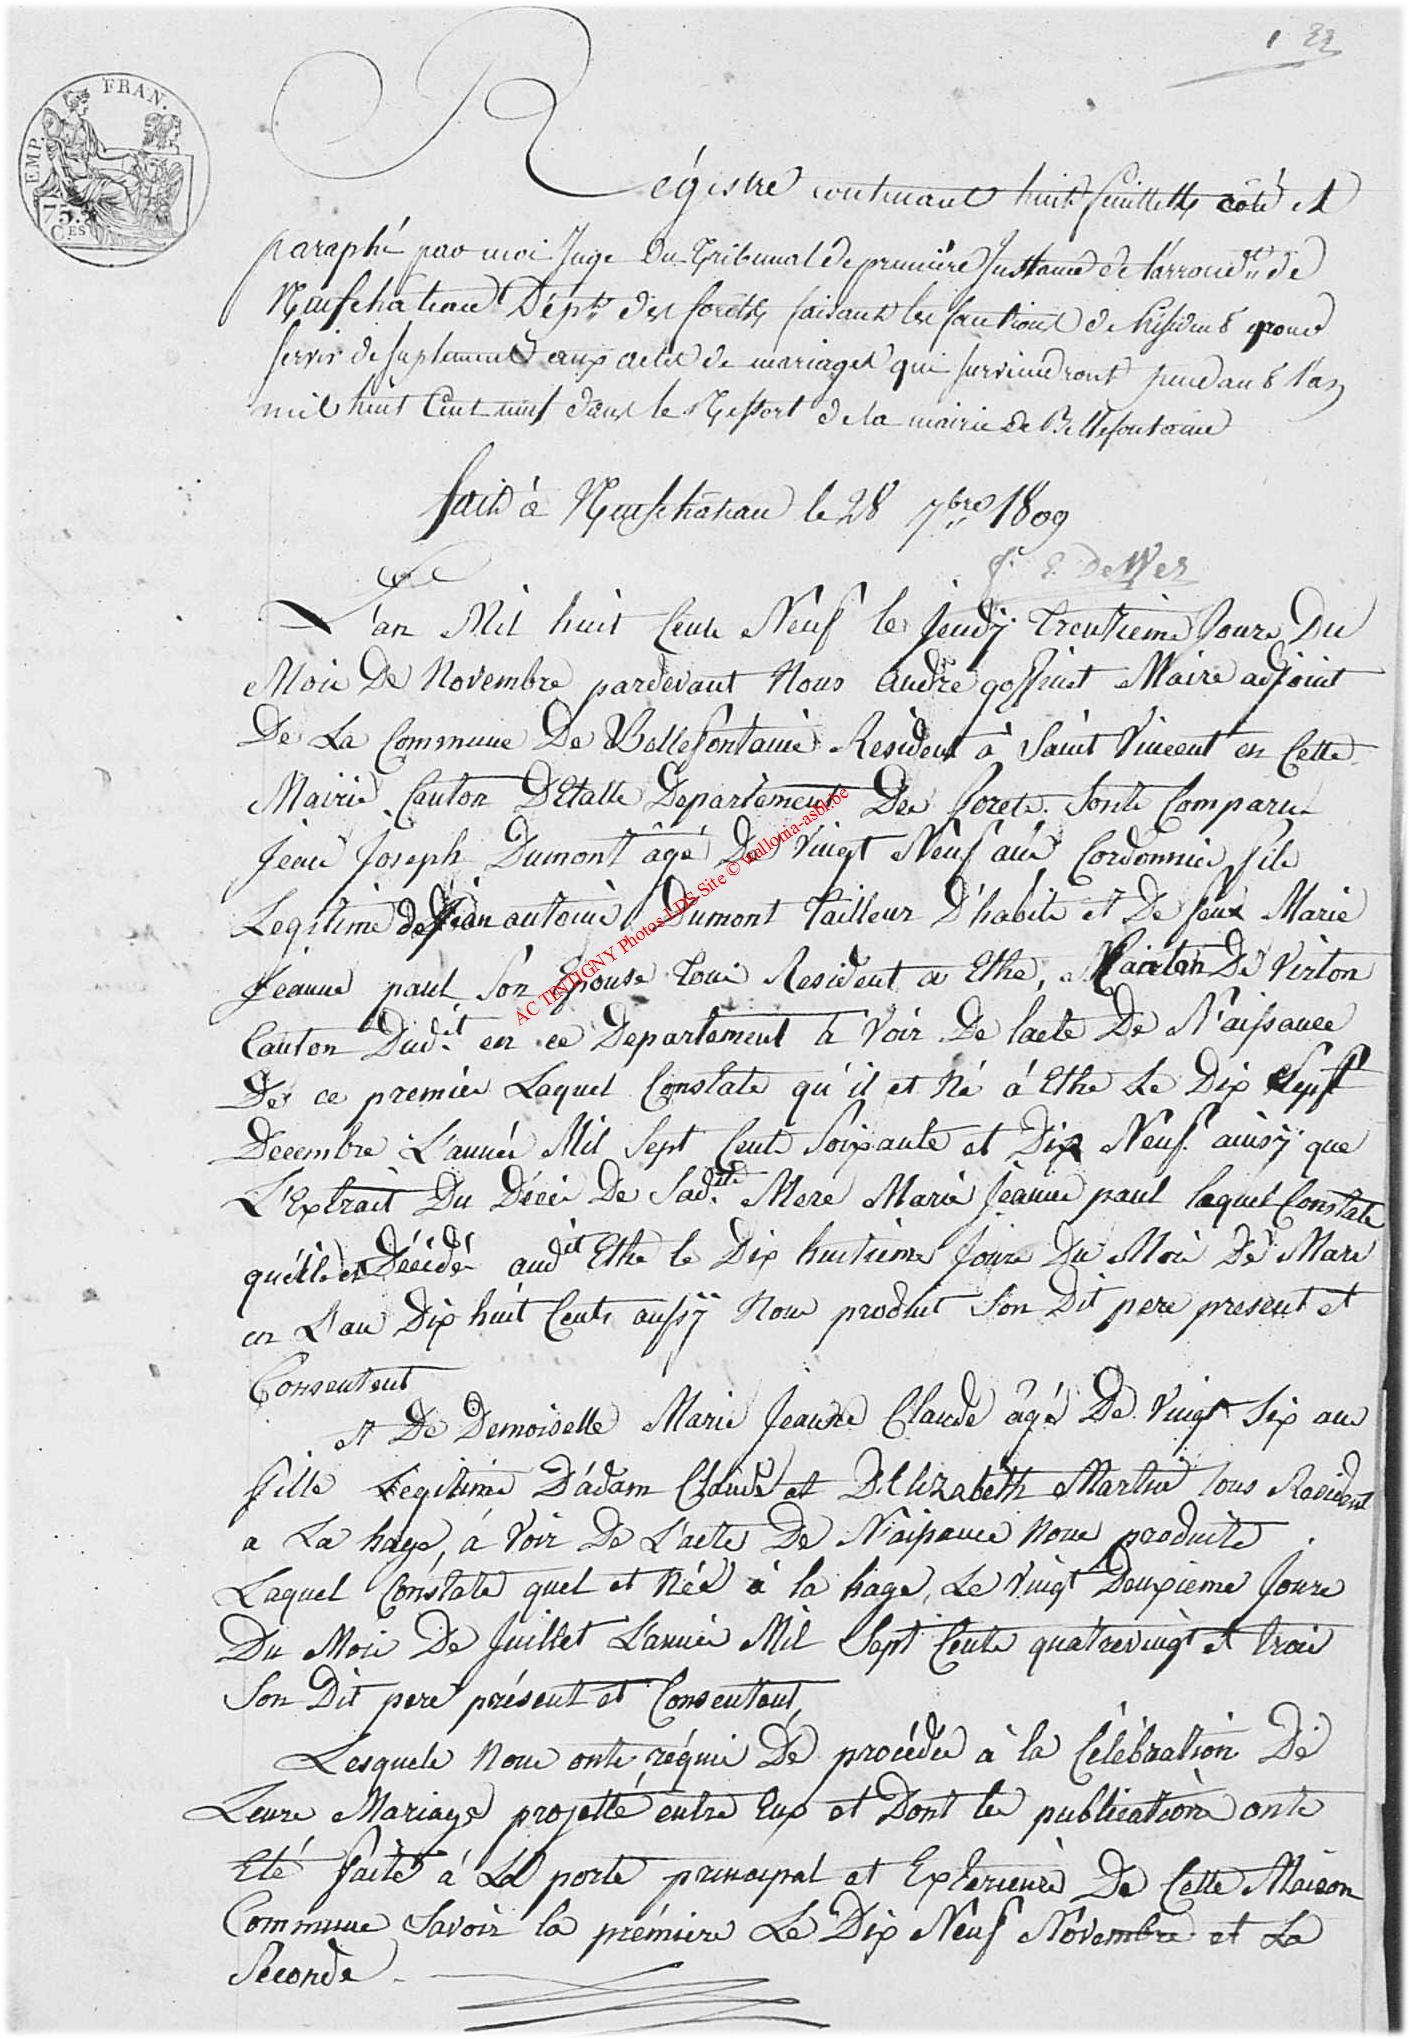 1 22
EMP. FRAN.
75.
CES
Régistre contenant huit feuillets côté et
paraphé par moi Juge Du Tribunal de première Instance de l'arrond.t de
Neufchateau Dép.t des forêts faisant les fonctions de Président pour
servir de suplement aux actes de mariages qui surviendront pendant l'an
mil huit Cent neuf dans le Ressort de la mairie de Bellefontaine
fait à Neufchâteau le 28 7bre 1809
L'an Mil huit Cent Neuf le Jeudÿ trentieme Jour Du
Mois De Novembre pardevant Nous André goffinet Maire adjoint
De La Commune De Bellefontaine Résident à Saint Vincent en Cette
Mairie Canton D'Etalle Departement Des Forets Sonts Comparu
Jean Joseph Dumont âgé De Vingt Neuf ans Cordonnier fils
Legitime de Jean antoine Dumont Tailleur D'habits et De feux Marie
Jeanne paul Son Epouse Tous Resident a Ethe, Canton De Virton
Canton Dud.it en ce Departement à Voir De l'acte De N'aissance
De ce premier Laquel Constate qu'il et Né à Ethe Le Dix Sept
Decembre L'année Mil Sept Cents Soixante et Dix Neuf ainsÿ que
L'Extrait Du Décès De Sad.ite Mere Marie Jeanne paul laquel Constate
qu'elle et Décédé aud.it Ethe le Dix huitieme Jour Du Mois De Mars
en L'an Dix huit Cents aussÿ Nous produit Son Dit pere present et
Consentent
et De Demoiselle Marie Jeanne Claude âgé De Vingt Six ans
fille Legitime D'adam Claude et D'Elizabeth Martin tous Resident
a La hage, à Voir De L'acte De N'aissance Nous produite
Laquel Constate quel et Née à la hage, Le Vingt Deuxieme Jour
Du Mois De Juillet L'année Mil Sept Cents quatrevingt et trois
Son Dit pere présent et Consentent,
Lesquels Nous onts réquis De procéder à la Célébration De
Leurs Mariage projetté entre Eux et Dont les publications onts
Eté faite à La porte principal et Exterieure De Cette Maison
Commune Savoir la prémiere Le Dix Neuf Novembre et La
Seconde
AC TINTIGNY Photos LDS Site © wallonia-asbl.be